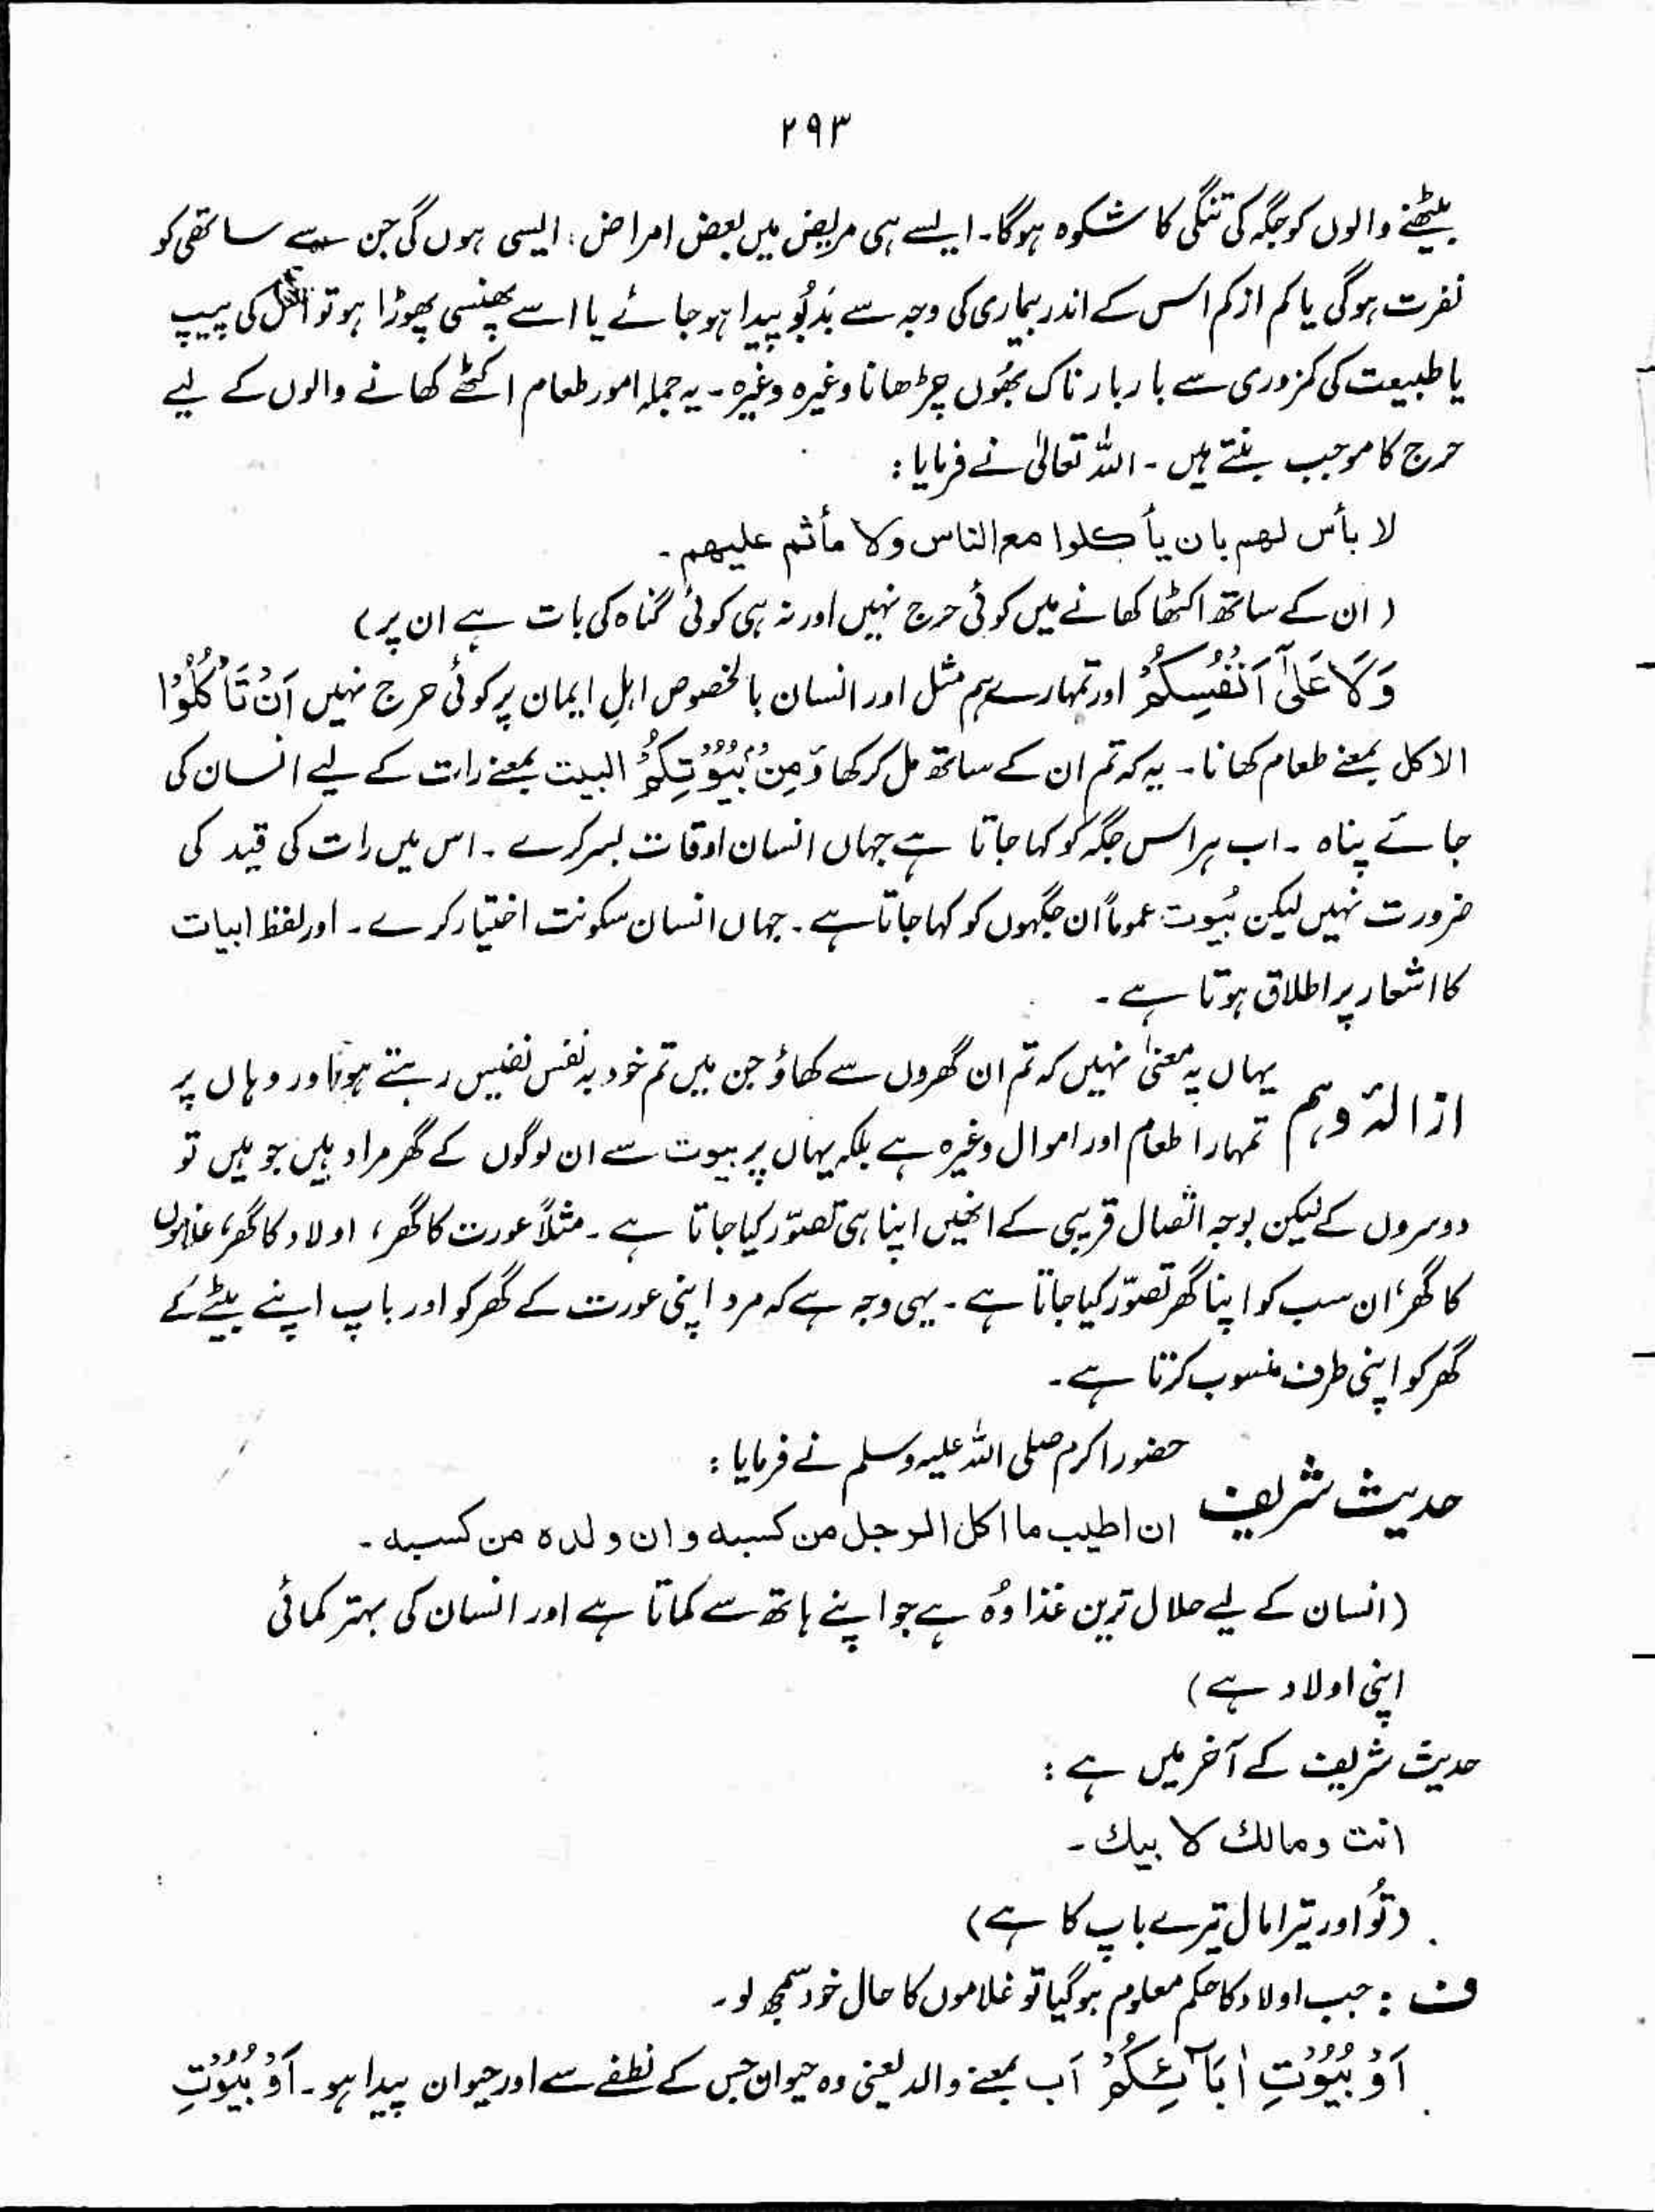 ۲۹۳
بیٹھنے والوں کو جگہ کی تنگی کا شکوہ ہوگا۔ ایسے ہی مریض میں بعض امراض ایسی ہوں گی جن سے ساتھی کو
نفرت ہوگی یا کم از کم اس کے اندر بیماری کی وجہ سے بدبُو پیدا ہو جائے یا اسے پھنسی پھوڑا ہو تو اس کی پیپ
یا طبیعت کی کمزوری سے بار بار ناک بھُوں چڑھانا وغیرہ وغیرہ۔ یہ جملہ امور طعام اکٹھے کھانے والوں کے لیے
حرج کا موجب بنتے ہیں۔ اللہ تعالیٰ نے فرمایا:
لا بأس لهم بان يأكلوا مع الناس ولا مأثم عليهم۔
(ان کے ساتھ اکٹھا کھانے میں کوئی حرج نہیں اور نہ ہی کوئی گناہ کی بات ہے ان پر)
وَلَا عَلٰٓى اَنْفُسِكُمْ اور تمہارے ہم مثل اور انسان بالخصوص اہلِ ایمان پر کوئی حرج نہیں اَنْ تَاْكُلُوْا
الاکل بمعنے طعام کھانا۔ یہ کہ تم ان کے ساتھ مل کر کھاؤ مِنْۢ بُيُوْتِكُمْ البیت بمعنے رات کے لیے انسان کی
جائے پناہ ۔ اب ہر اس جگہ کو کہا جاتا ہے جہاں انسان اوقات بسر کرے ۔ اس میں رات کی قید کی
ضرورت نہیں لیکن بُیوت عموماً ان جگہوں کو کہا جاتا ہے ۔ جہاں انسان سکونت اختیار کرے ۔ اور لفظ ابیات
کا اشعار پر اطلاق ہوتا ہے ۔
ازالۂ وہم یہاں یہ معنیٰ نہیں کہ تم ان گھروں سے کھاؤ جن میں تم خود بہ نفس نفیس رہتے ہو اور وہاں پر
تمہارا طعام اور اموال وغیرہ ہے بلکہ یہاں پر بیوت سے ان لوگوں کے گھر مراد ہیں جو ہیں تو
دوسروں کے لیکن بوجہ اتصال قریبی کے انھیں اپنا ہی تصوّر کیا جاتا ہے ۔ مثلاً عورت کا گھر، اولاد کا گھر، غلاموں
کا گھر، ان سب کو اپنا گھر تصوّر کیا جاتا ہے ۔ یہی وجہ ہے کہ مرد اپنی عورت کے گھر کو اور باپ اپنے بیٹے کے
گھر کو اپنی طرف منسوب کرتا ہے ۔
حدیث شریف حضور اکرم صلی اللہ علیہ وسلم نے فرمایا:
ان اطيب ما اكل الرجل من كسبه و ان ولده من كسبه ۔
(انسان کے لیے حلال ترین غذا وُہ ہے جو اپنے ہاتھ سے کماتا ہے اور انسان کی بہتر کمائی
اپنی اولاد ہے)
حدیث شریف کے آخر میں ہے:
انت و مالك لابيك ۔
(تُو اور تیرا مال تیرے باپ کا ہے)
ف : جب اولاد کا حکم معلوم ہو گیا تو غلاموں کا حال خود سمجھ لو ۔
اَوْ بُيُوْتِ اٰبَآئِكُمْ اَب بمعنے والد یعنی وہ حیوان جس کے نطفے سے اور حیوان پیدا ہو ۔ اَوْ بُيُوْتِ